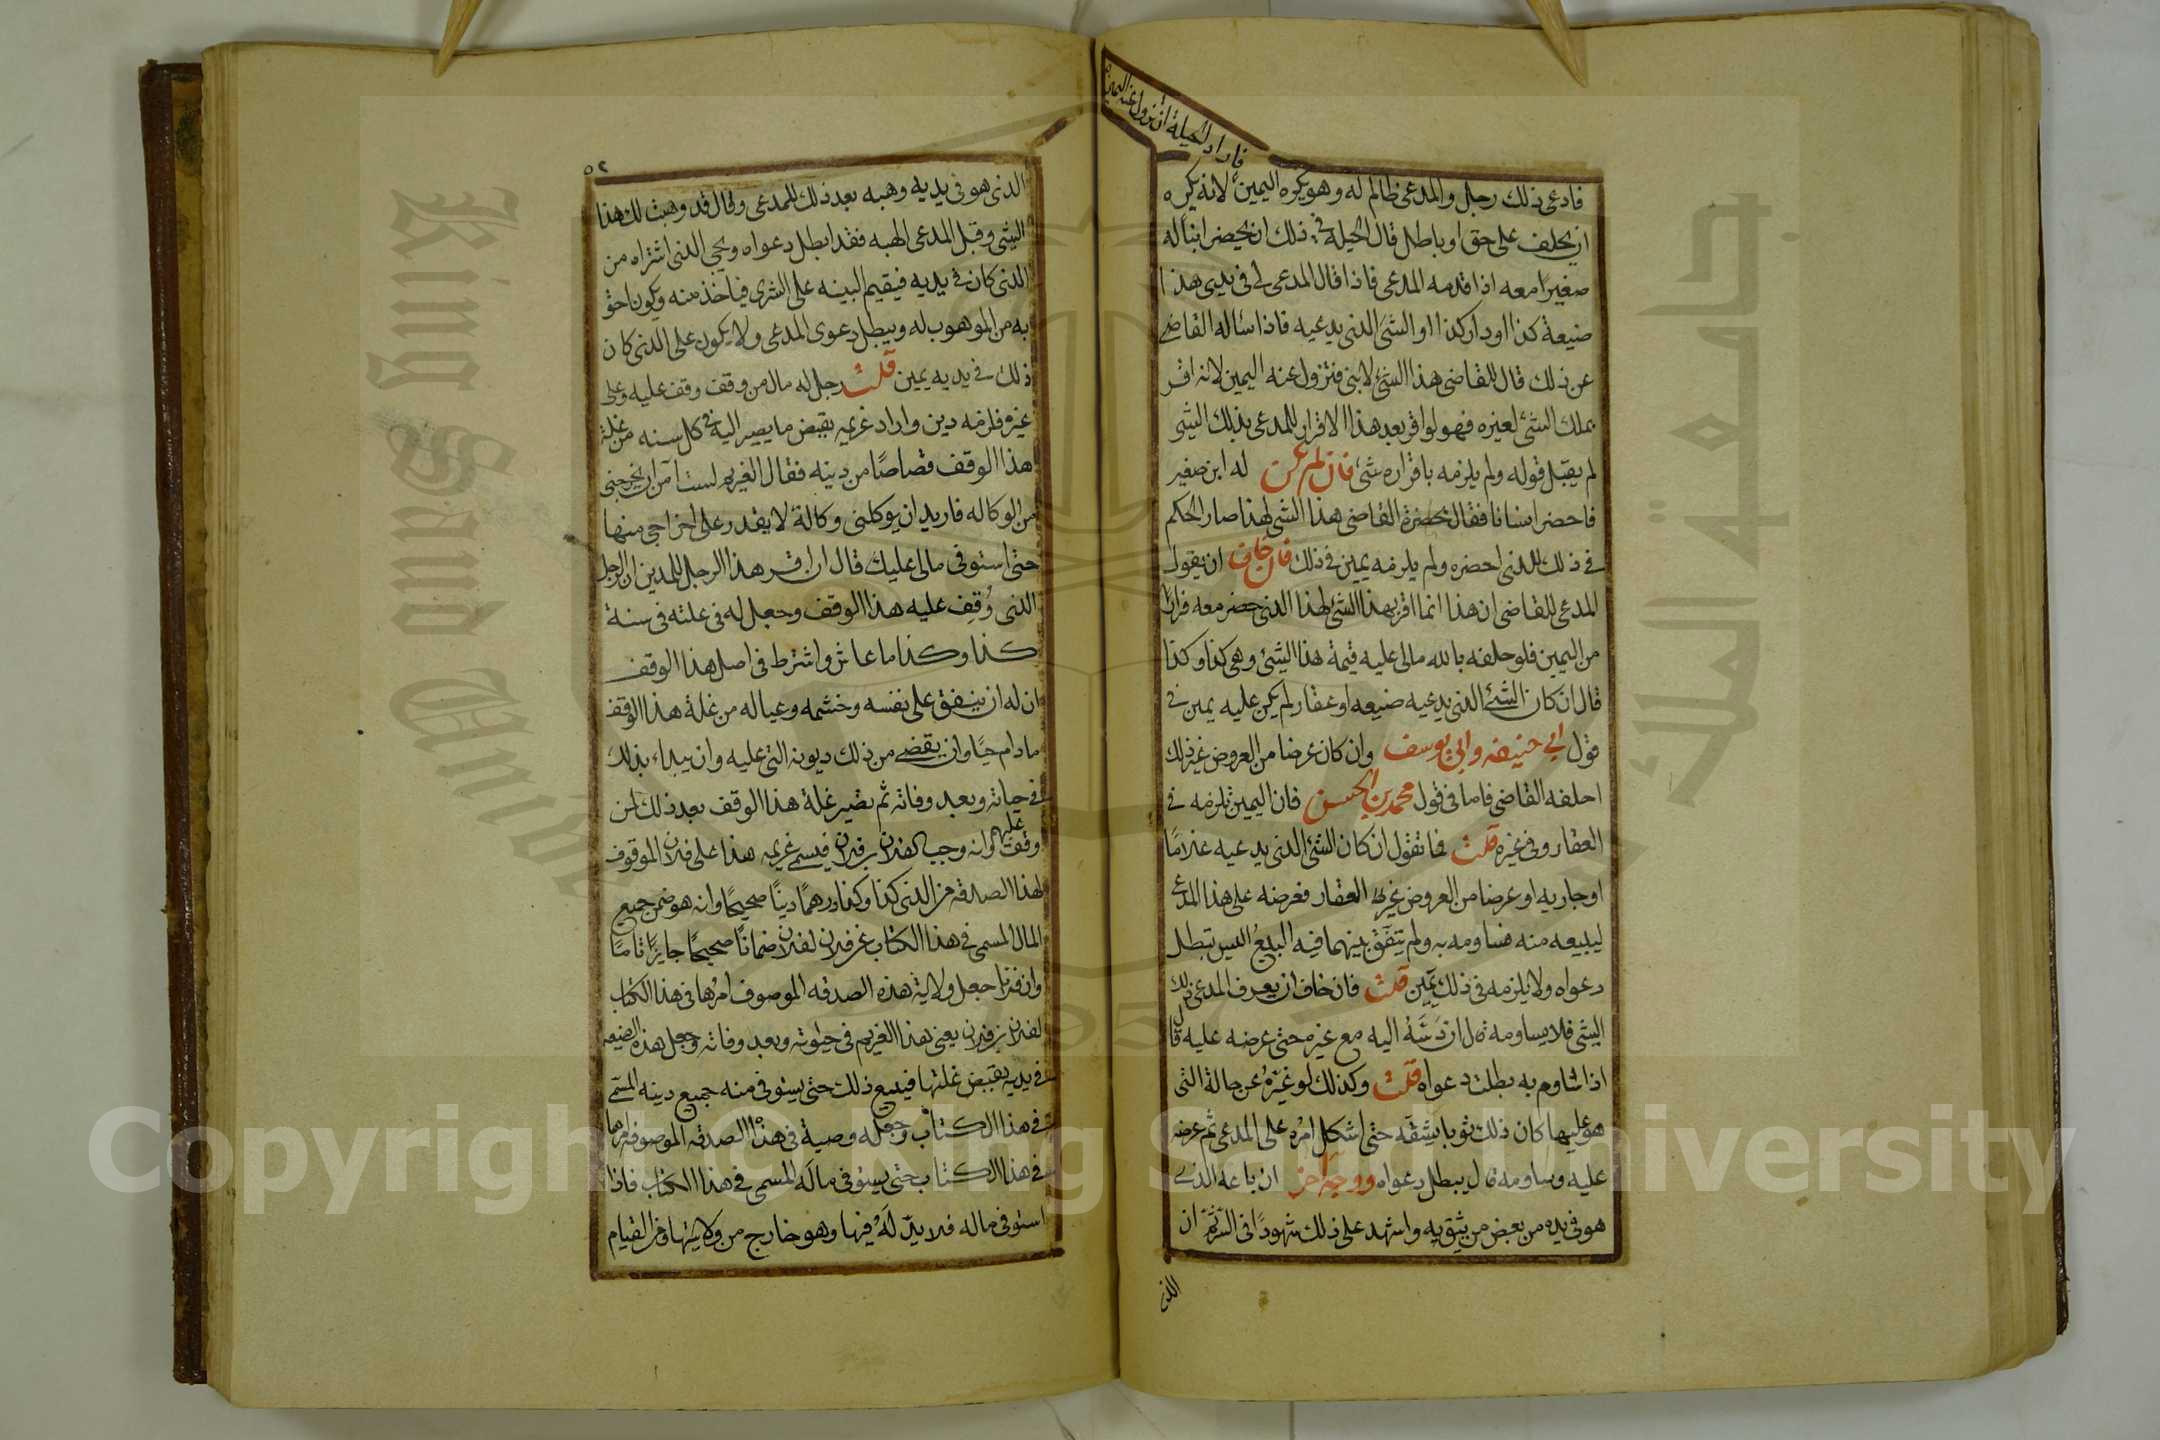 فادعى ذلك رجل والمدعى ظالم له وهو يكره اليمين لانه يكره
فاراد الحيلة ان تزول عنه اليمين
ان يحلف على حق او باطل قال الحيلة في ذلك ان يحضر ابنا له
صغيرا معه اذا قدمه المدعى فاذا قال المدعى لي في يدي هذا
ضيعة كذا او دار كذا او الشئ الذى يدعيه فاذا ساله القاضي
عن ذلك قال للقاضى هذا الشئ لابنى فتزول عنه اليمين لانه اقر
بملك الشئ لغيره فهو لو اقر بعد هذا الاقرار للمدعى بذلك الشئ
لم يقبل قوله ولم يلزمه باقراره شئ فان لم يكن له ابن صغير
فاحضر انسانا فقال بحضرة القاضى هذا الشئ لهذا صار الحكم
في ذلك للذى احضره ولم يلزمه يمين في ذلك فان خاف ان يقول
المدعى للقاضى ان هذا انما اقر بهذا الشئ لهذا الذى حضر معه فرارا
من اليمين فلو حلفه بالله مالى عليه قيمة هذا الشئ وهى كذا وكذا
قال ان كان الشئ الذى يدعيه ضيعه او عقار لم يكن عليه يمين في
قول ابي حنيفه وابي يوسف وان كان عرضا من العروض غير ذلك
احلفه القاضى فاما في قول محمد بن الحسن فان اليمين تلزمه في
العقار وفى غيره قلت فما تقول ان كان الشئ الذى يدعيه غلاما
او جاريه او عرضا من العروض غير العقار فعرضه على هذا المدعى
ليبيعه منه فساومه به ولم يتفق بينهما فيه البيع اليس تبطل
دعواه ولا يلزمه في ذلك يمين قلت فان خاف ان يعرف المدعى ذلك
الشئ فلا يساومه قال ان دسه اليه مع غيره حتى عرضه عليه قال
اذا ساوم به بطلت دعواه قلت وكذلك لو غيره عن حالة التى
هو عليها كان ذلك ثوبا يشقه حتى اشكل امره على المدعى ثم عرضه
عليه وساومه قال يبطل دعواه ووجه اخر ان باعه الذى
هو في يده من بعض من يثق به واشهد على ذلك شهودا في السر ثم ان
الذى
٥٢
الذى هو في يديه وهبه بعد ذلك للمدعى وقال قد وهبت لك هذا
الشئ وقبل المدعى الهبه فقد ابطل دعواه ويجى الذى اشتراه من
الذى كان في يديه فيقيم البينه على الشرى فياخذ منه ويكون احق
به من الموهوب له ويبطل دعوى المدعى ولا يكون على الذى كان
ذلك في يديه يمين قلت رجل له مال من وقف وقف عليه وعلى
غيره فلزمه دين واراد غريمه بقبض ما يصير اليه في كل سنه من غلة
هذا الوقف قصاصا من دينه فقال الغريم لست آمن ان يخرجنى
من الوكاله فاريد ان يوكلنى وكالة لا يقدر على اخراجى منها
حتى استوفى مالى عليك قال ان اقر هذا الرجل للمدين ان الرجل
الذى وقف عليه هذا الوقف وجعل له في غلته في سنة
كذا وكذا ما عاش واشترط في اصل هذا الوقف
ان له ان ينفق على نفسه وحشمه وعياله من غلة هذا الوقف
مادام حيا وان يقضى من ذلك ديونه التى عليه وان يبداء بذلك
في حياته وبعد وفاته ثم تصير غلة هذا الوقف بعد ذلك لمن
وقفت عليهم وانه وجب لفلان بن فلان فيسمى غريمه هذا على فلان الموقوف
لهذا الصدقه من الدين كذا وكذا درهما دينا صحيحا وانه هو ضمن جميع
المال المسمى في هذا الكتاب عن فلان لفلان ضمانا صحيحا جايزا تاما
وان فلانا جعل ولاية هذه الصدقه الموصوف امرها في هذا الكتاب
لفلان بن فلان يعنى هذا الغريم في حيوته وبعد وفاته وجعل هذه الضيعه
في يديه يقبض غلتها فيدع ذلك حتى يستوفى منه جميع دينه المسمى
في هذا الكتاب وجعل له وصية في هذه الصدقه الموصوف امرها
في هذا الكتاب حتى يستوفى ماله المسمى في هذا الكتاب فاذا
استوفى ماله فلا يد له فيها وهو خارج من ولايتها ومن القيام
King Saud University
جامعة الملك
1957
Copyright © King Saud University